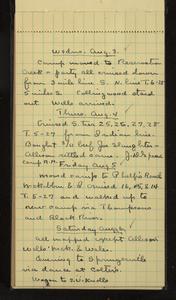 Wednes. Aug. 3.
Camp moved to Reservation
Creek - party all cruised down
from 3 mile line S. N. line T. 6-28
5 miles S. Collingwood staid
out Wells arrived.
Thurs. Aug. 4
Cruised S. tier 25, 26, 27, 28
T. 5-27 from Indian line.
Bought beef Joe Slaughter -
Allison rattled some.
camp P.M. Friday Aug 5
moved camp to Pacific Ranch
Cruised 16, 15, & 14
T. 5-27 and walked up to
new camp via Thompsons
and Black River.
Saturday Aug 6
All mapped except Allison
Wells & Wales.
Evening to Springerville
via dance at Colter.
Wagon to S.W. Knolls